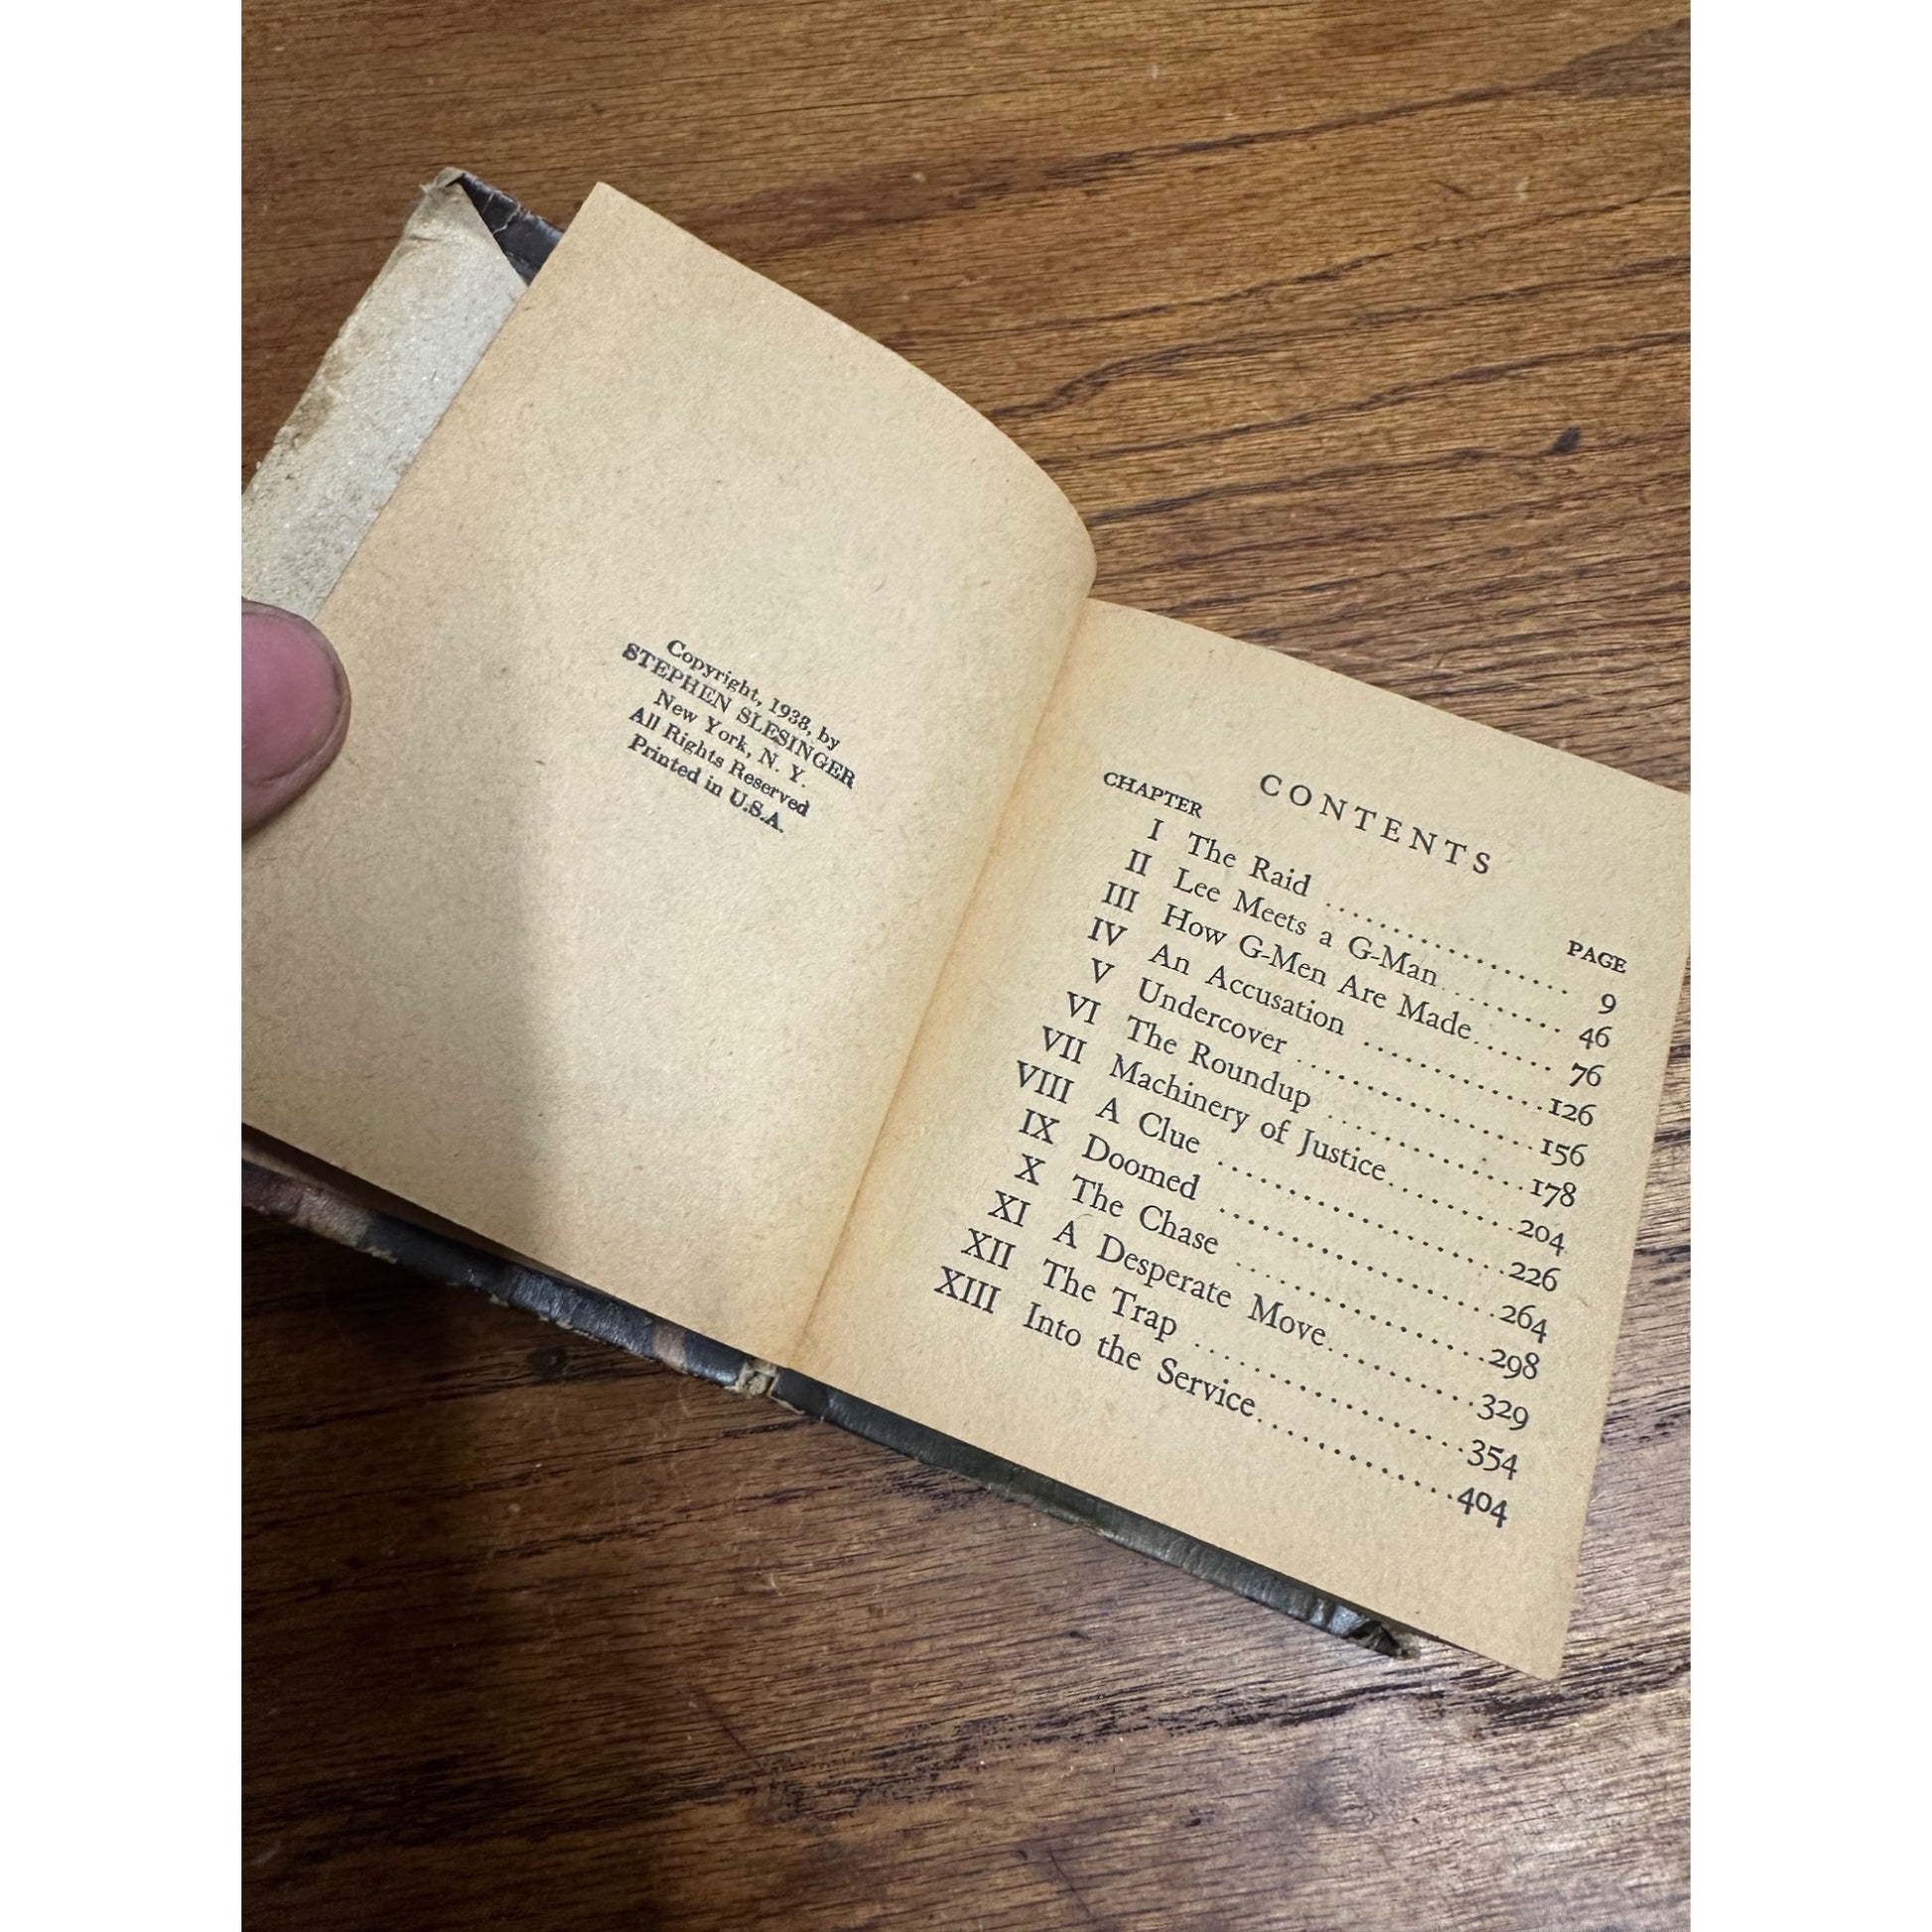 Copyright, 1938, by
STEPHEN SLESINGER
New York, N. Y.
All Rights Reserved
Printed in U.S.A.
CONTENTS
CHAPTER PAGE
I The Raid .................... 9
II Lee Meets a G-Man.......... 46
III How G-Men Are Made....... 76
IV An Accusation ...............126
V Undercover ..................156
VI The Roundup ................178
VII Machinery of Justice..........204
VIII A Clue ......................226
IX Doomed .....................264
X The Chase ...................298
XI A Desperate Move............329
XII The Trap ....................354
XIII Into the Service...............404